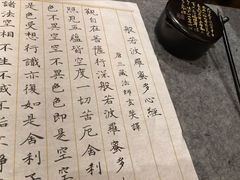 般若波羅蜜多心經
唐三藏法師玄奘譯
觀自在菩薩行深般若波羅蜜多
照見五蘊皆空度一切苦厄舍利
空不異色色即是空空
是色受想行識亦復如是舍利子
法空相不生不滅不垢不淨